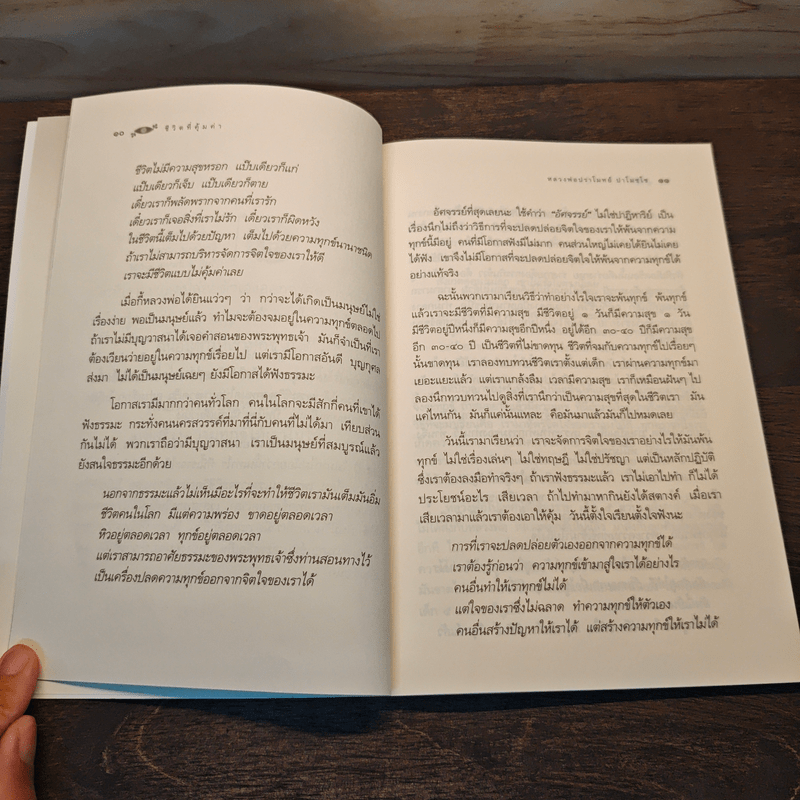 ๑๐ ชีวิตที่คุ้มค่า
ชีวิตไม่มีความสุขหรอก แป๊บเดียวก็แก่
แป๊บเดียวก็เจ็บ แป๊บเดียวก็ตาย
เดี๋ยวเราก็พลัดพรากจากคนที่เรารัก
เดี๋ยวเราก็เจอสิ่งที่เราไม่รัก เดี๋ยวเราก็ผิดหวัง
ในชีวิตนี้เต็มไปด้วยปัญหา เต็มไปด้วยความทุกข์นานาชนิด
ถ้าเราไม่สามารถบริหารจัดการจิตใจของเราให้ดี
เราจะมีชีวิตแบบไม่คุ้มค่าเลย
เมื่อกี้หลวงพ่อได้ยินแว่วๆ ว่า กว่าจะได้เกิดเป็นมนุษย์ไม่ใช่
เรื่องง่าย พอเป็นมนุษย์แล้ว ทำไมจะต้องจมอยู่ในความทุกข์ตลอดไป
ถ้าเราไม่มีบุญวาสนาได้เจอคำสอนของพระพุทธเจ้า มันก็จำเป็นที่เรา
ต้องเวียนว่ายอยู่ในความทุกข์เรื่อยไป แต่เรามีโอกาสอันดี บุญกุศล
ส่งมา ไม่ได้เป็นมนุษย์เฉยๆ ยังมีโอกาสได้ฟังธรรมะ
โอกาสเรามีมากกว่าคนทั่วโลก คนในโลกจะมีสักกี่คนที่เขาได้
ฟังธรรม กระทั่งคนนครสวรรค์ที่มาที่นี่กับคนที่ไม่ได้มา เทียบส่วน
กันไม่ได้ พวกเราถือว่ามีบุญวาสนา เราเป็นมนุษย์ที่สมบูรณ์แล้ว
ยังสนใจธรรมะอีกด้วย
นอกจากธรรมะแล้วไม่เห็นมีอะไรที่จะทำให้ชีวิตเรามันเต็มมันอิ่ม
ชีวิตคนในโลก มีแต่ความพร่อง ขาดอยู่ตลอดเวลา
หิวอยู่ตลอดเวลา ทุกข์อยู่ตลอดเวลา
แต่เราสามารถอาศัยธรรมะของพระพุทธเจ้าซึ่งท่านสอนทางไว้
เป็นเครื่องปลดความทุกข์ออกจากจิตใจของเราได้
หลวงพ่อปราโมทย์ ปาโมชฺโช ๑๑
อัศจรรย์ที่สุดเลยนะ ใช้คำว่า "อัศจรรย์" ไม่ใช่ปาฏิหาริย์ เป็น
เรื่องนึกไม่ถึงว่าวิธีการที่จะปลดปล่อยจิตใจของเราให้พ้นจากความ
ทุกข์นี้มีอยู่ คนที่มีโอกาสฟังมีไม่มาก คนส่วนใหญ่ไม่เคยได้ยินไม่เคย
ได้ฟัง เขาจึงไม่มีโอกาสที่จะปลดปล่อยจิตใจให้พ้นจากความทุกข์ได้
อย่างแท้จริง
ฉะนั้นพวกเรามาเรียนวิธีว่าทำอย่างไรใจเราจะพ้นทุกข์ พ้นทุกข์
แล้วเราจะมีชีวิตที่มีความสุข มีชีวิตอยู่ ๑ วันก็มีความสุข ๑ วัน
มีชีวิตอยู่ปีหนึ่งก็มีความสุขอีกปีหนึ่ง อยู่ได้อีก ๓๐-๔๐ ปีก็มีความสุข
อีก ๓๐-๔๐ ปี เป็นชีวิตที่ไม่ขาดทุน ชีวิตที่จมกับความทุกข์ไปเรื่อยๆ
นั้นขาดทุน เราลองทบทวนชีวิตเราตั้งแต่เด็ก เราผ่านความทุกข์มา
เยอะแยะแล้ว แต่เราแกล้งลืม เวลามีความสุข เราก็เหมือนฝันๆ ไป
ลองนึกทบทวนไปดูสิ่งที่เรานึกว่าเป็นความสุขที่สุดในชีวิตเรา มัน
แค่ไหนกัน มันก็แค่นั้นแหละ คือมันมาแล้วมันก็ไปหมดเลย
วันนี้เรามาเรียนว่า เราจะจัดการจิตใจของเราอย่างไรให้มันพ้น
ทุกข์ ไม่ใช่เรื่องเล่นๆ ไม่ใช่ทฤษฎี ไม่ใช่ปรัชญา แต่เป็นหลักปฏิบัติ
ซึ่งเราต้องลงมือทำจริงๆ ถ้าเราฟังธรรมะแล้ว เราไม่เอาไปทำ ก็ไม่ได้
ประโยชน์อะไร เสียเวลา ถ้าไปทำมาหากินยังได้สตางค์ เมื่อเรา
เสียเวลามาแล้วเราต้องเอาให้คุ้ม วันนี้ตั้งใจเรียนตั้งใจฟังนะ
การที่เราจะปลดปล่อยตัวเองออกจากความทุกข์ได้
เราต้องรู้ก่อนว่า ความทุกข์เข้ามาสู่ใจเราได้อย่างไร
คนอื่นทำให้เราทุกข์ไม่ได้
แต่ใจของเราซึ่งไม่ฉลาด ทำความทุกข์ให้ตัวเอง
คนอื่นสร้างปัญหาให้เราได้ แต่สร้างความทุกข์ให้เราไม่ได้